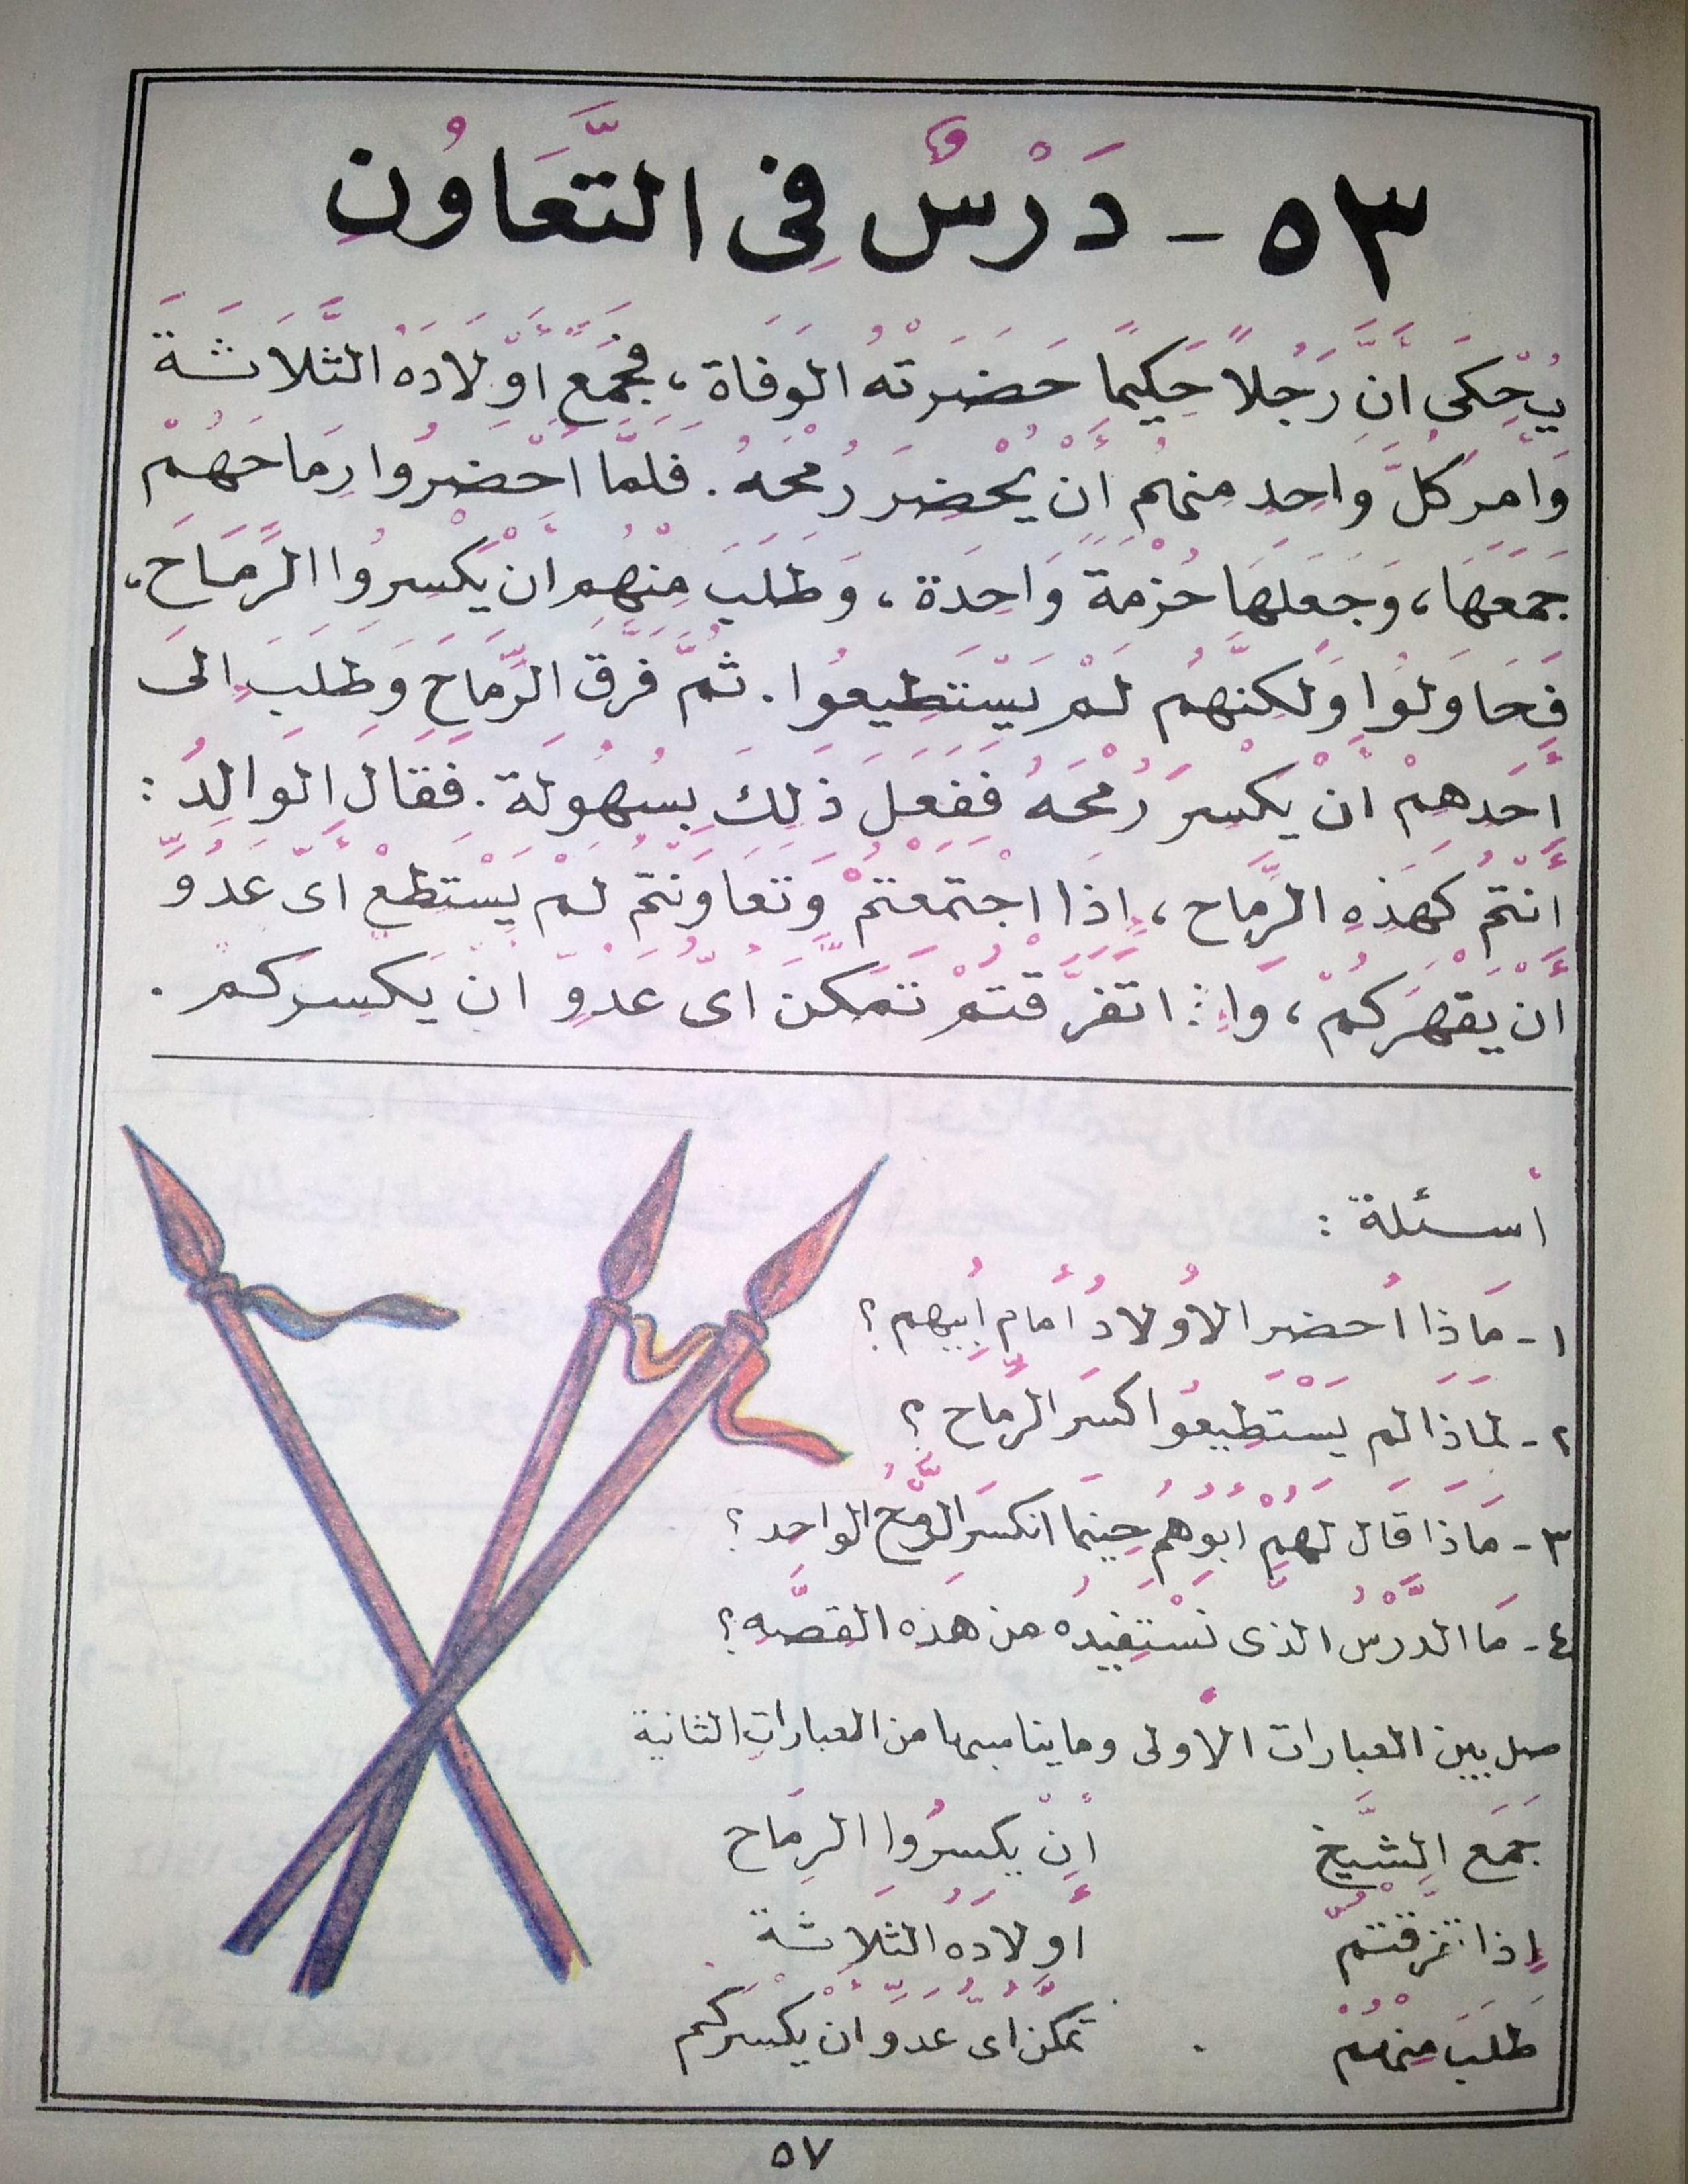 ٥٣ - دَرْسٌ فِى التَّعَاوُنِ
يُحْكَى أَنَّ رَجُلاً حَكِيمًا حَضَرَتْهُ الوَفَاة ، فجَمَعَ أَوْلَادَهُ الثَّلَاثَةَ
وَأَمَرَ كُلَّ وَاحِدٍ مِنهُمْ أَنْ يُحْضِرَ رُمْحَهُ . فَلَمَّا أَحْضَرُوا رِمَاحَهُمْ
جَمَعَهَا ، وَجَعَلَهَا حُزْمَةً وَاحِدَة ، وَطَلَبَ مِنْهُم أَنْ يَكْسِرُوا الرِّمَاحَ ،
فَحَاوَلُوا وَلَكِنَّهُم لَمْ يَسْتَطِيعُوا . ثُمَّ فَرَّقَ الرِّمَاحَ وَطَلَبَ إِلَى
أَحَدِهِمْ أَنْ يَكْسِرَ رُمْحَهُ فَفَعَلَ ذَلِكَ بِسُهُولَة . فَقَالَ الوَالِدُ :
أَنْتُمْ كَهَذِهِ الرِّمَاح ، إِذَا اجْتَمَعْتُمْ وَتَعَاوَنْتُمْ لَمْ يَسْتَطِعْ أَىُّ عَدُوٍّ
أَنْ يَقْهَرَكُمْ ، وَإِذَا تَفَرَّقْتُمْ تَمَكَّنَ أَىُّ عَدُوٍّ أَنْ يَكْسِرَكُم .
أسئلة :
١ - مَاذَا أحضَر الأَوْلادُ أمام أَبِيهم ؟
٢ - لمَاذَا لم يَسْتَطِيعُوا كسرَ الرِّمَاح ؟
٣ - مَاذَا قَالَ لَهُمْ أَبُوهُمْ حِينَمَا انكسَرَ الرُّمْحُ الواحِد ؟
٤ - مَا الدَّرْسُ الذى نَسْتَفِيدُهُ من هَذِه القِصَّه ؟
صل بين العبارات الأولى وما يناسبها من العباراتِ الثانية
جَمَعَ الشَّيْخُ أَنْ يكسِرُوا الرِمَاح
إِذا تفرقتُم أَولادَهُ الثَلَاثَة
طَلَبَ مِنْهُمْ . تَمَكَّنَ أَىُّ عَدُوٍّ أَنْ يَكْسِرَكُم
٥٧